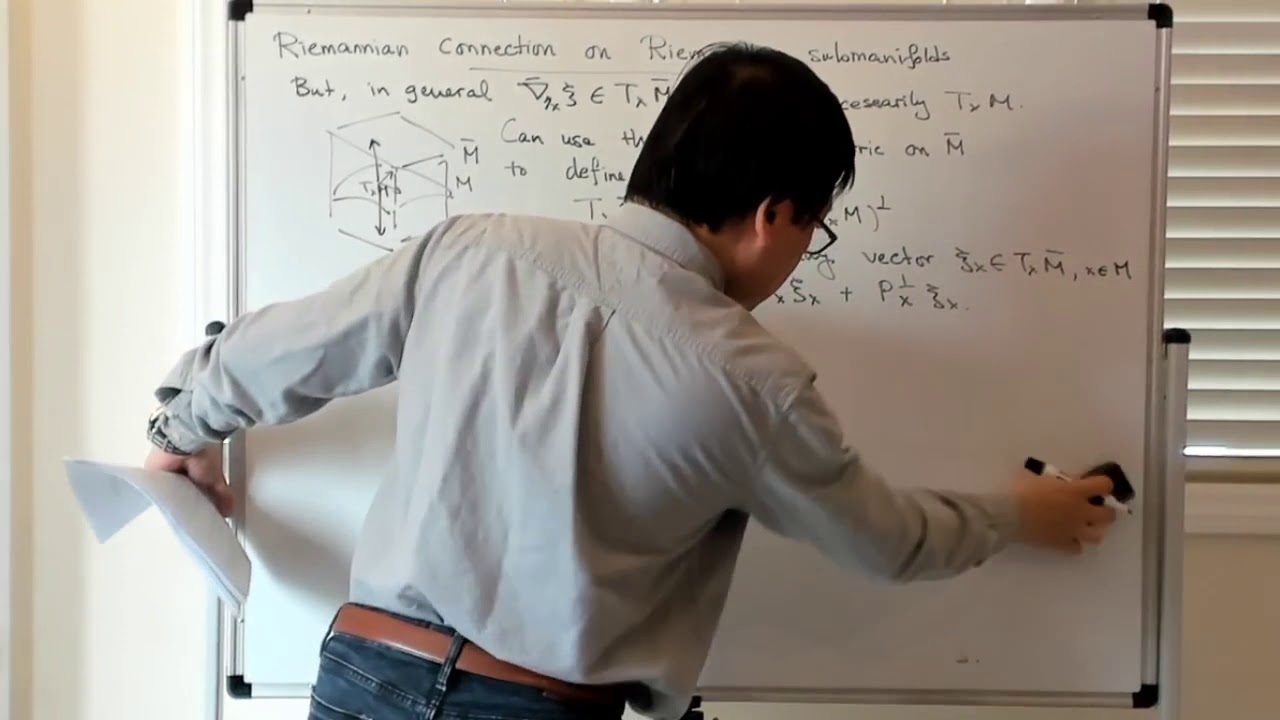 Riemannian Connection on Riem submanifolds
But, in general ∇̄_{ηₓ} ξ ∈ TₓM̄ cesearily TₓM.
Can use th ric on M̄
M̄
M
TₓM
to define
Tₓ ₓM)^⊥
vector ξₓ ∈ TₓM̄, x∈M
ₓξₓ + Pₓ^⊥ ξₓ.